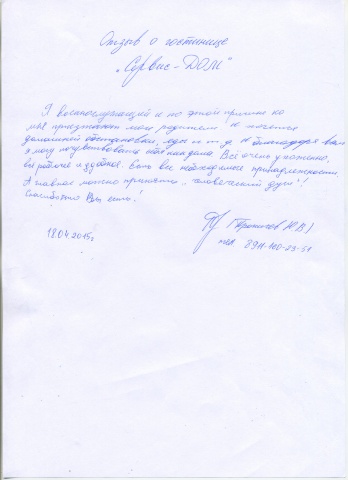 Отзыв о гостинице
„Сервис-ДОМ"
Я военнослужащий и по этой причине ко
мне приезжают мои родители. И хочется
домашней обстановки, еды и т.д. И благодаря вам
я могу почувствовать себя как дома. Всё очень ухоженно,
всё рабочее и удобное. Есть все необходимые принадлежности.
А главное можно принять - человеческий душ!!
Спасибо что Вы есть!
18.04.2015г
Ю.В.)
тел. 8911-100-23-51